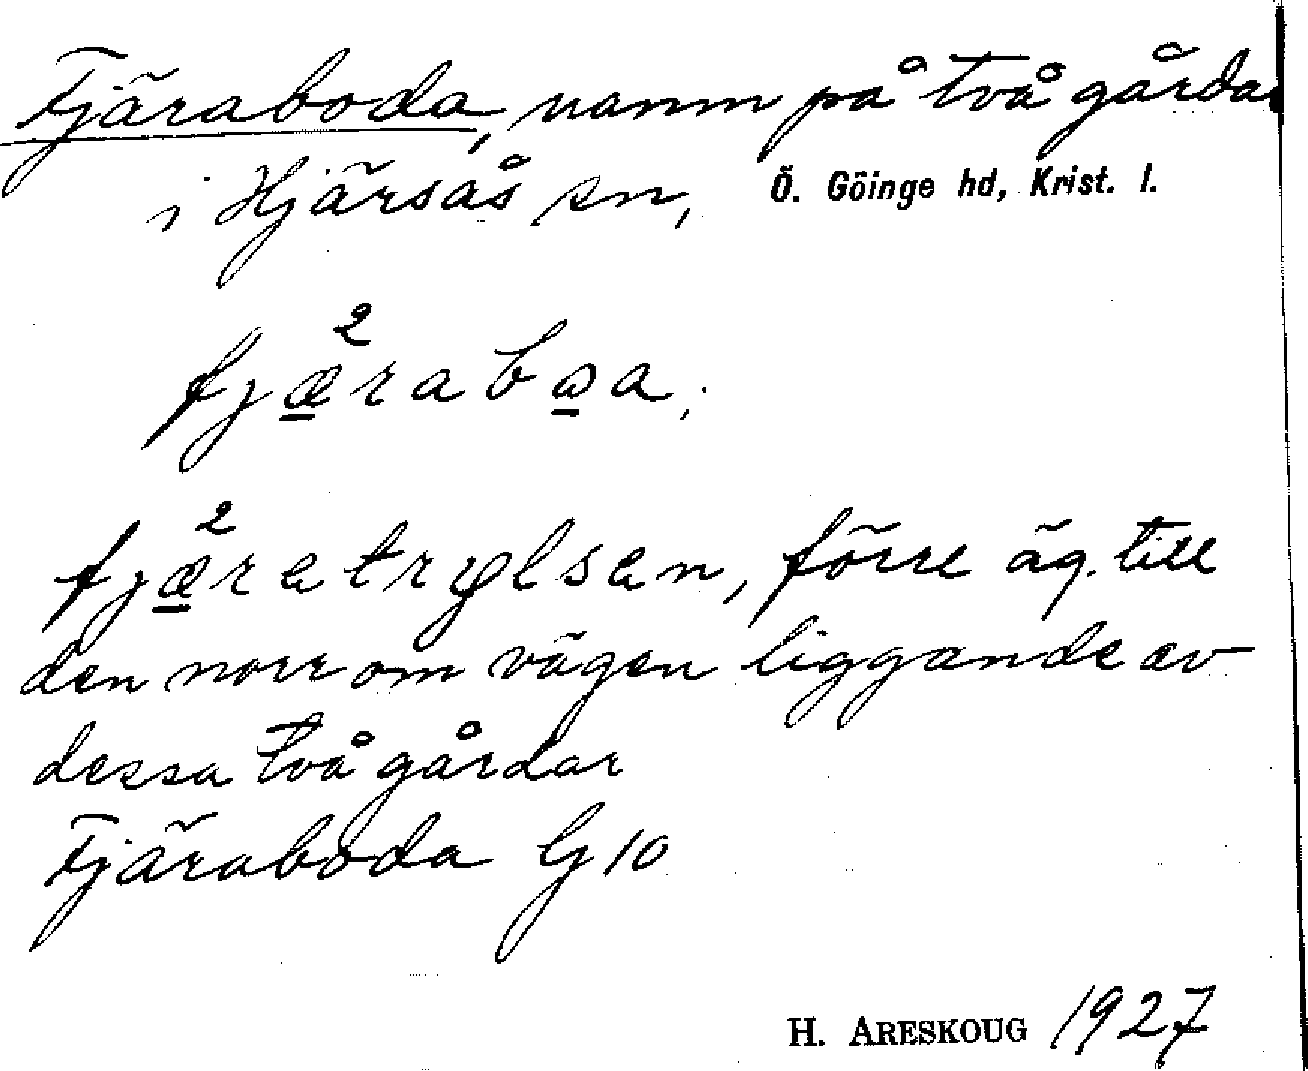 Fjäraboda, namn på två gårdar
i Hjärsås sn, Ö. Göinge hd, Krist. l.
fjæ²rabɷa;
fjæ²ratrylsen, förre äg. till
den norr om vägen liggande av
dessa två gårdar
Fjäraboda G 10
H. ARESKOUG 1927